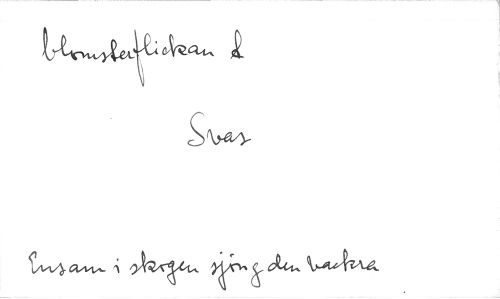 blomsterflickan &
Svar
Ensam i skogen sjöng den vackra